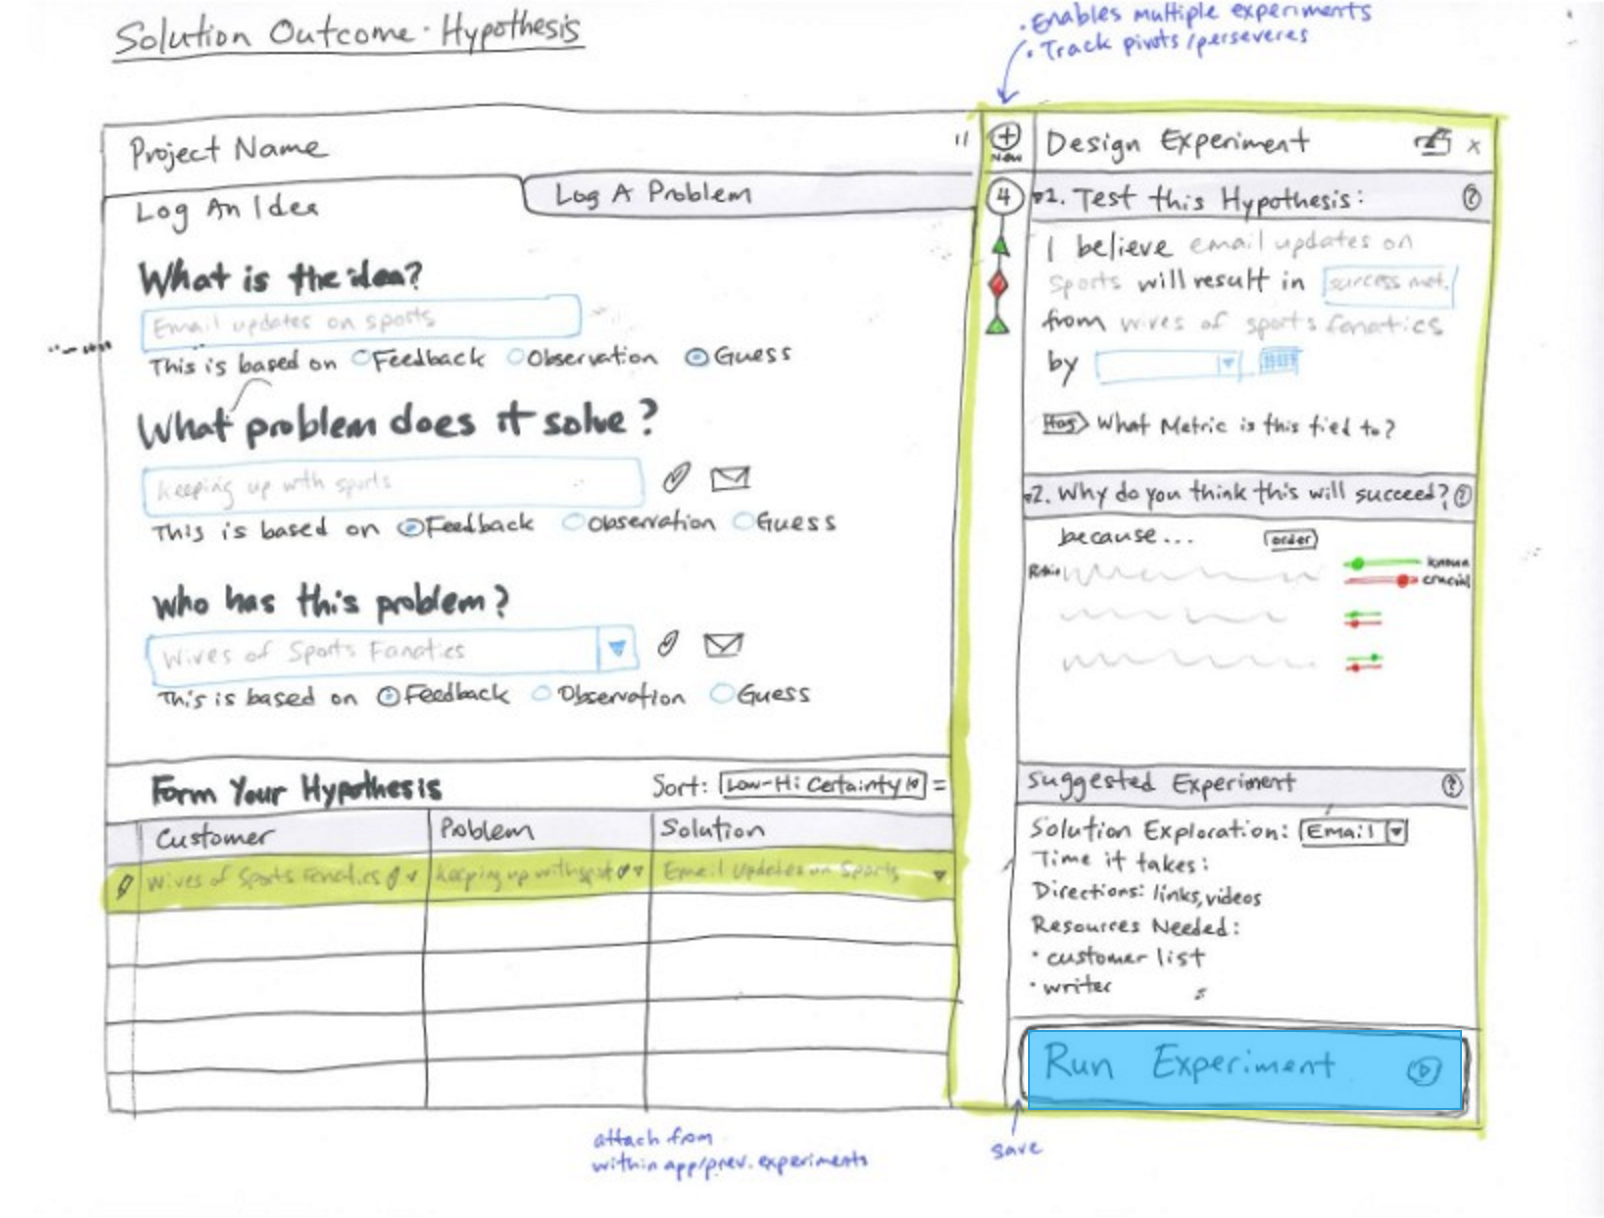 Solution Outcome - Hypothesis
• Enables multiple experiments
• Track pivots/perseveres
Project Name
Log An Idea
Log A Problem
What is the idea?
Email updates on sports
This is based on Feedback Observation Guess
What problem does it solve?
keeping up with sports
This is based on Feedback Observation Guess
Who has this problem?
Wives of Sports Fanatics
This is based on Feedback Observation Guess
Form Your Hypothesis
Sort: Low-Hi Certainty
Customer Problem Solution
Wives of Sports Fanatics keeping up with Email Updates on Sports
attach from
within app/prev. experiments
New
4
Design Experiment x
1. Test this Hypothesis: ?
I believe email updates on
Sports will result in success met.
from wives of sports fanatics
by
What Metric is this tied to?
2. Why do you think this will succeed? ?
because... order
known
crucial
Suggested Experiment ?
Solution Exploration: Email
Time it takes:
Directions: links, videos
Resources Needed:
• customer list
• writer
Run Experiment
save